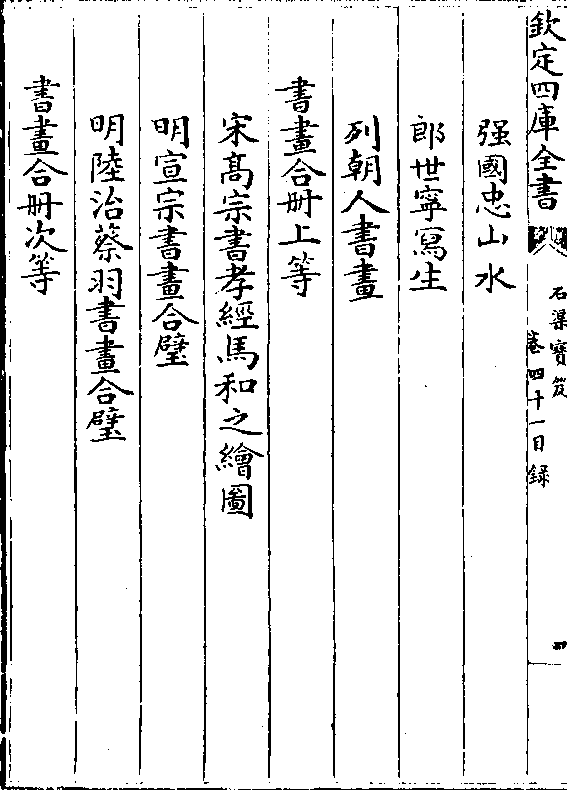 欽定四庫全書
石渠寶笈
卷四十一目錄
强國忠山水
郎世寧寫生
列朝人書畫
書畫合冊上等
宋髙宗書孝經馬和之繪圖
明宣宗書畫合璧
明陸治蔡羽書畫合璧
書畫合冊次等